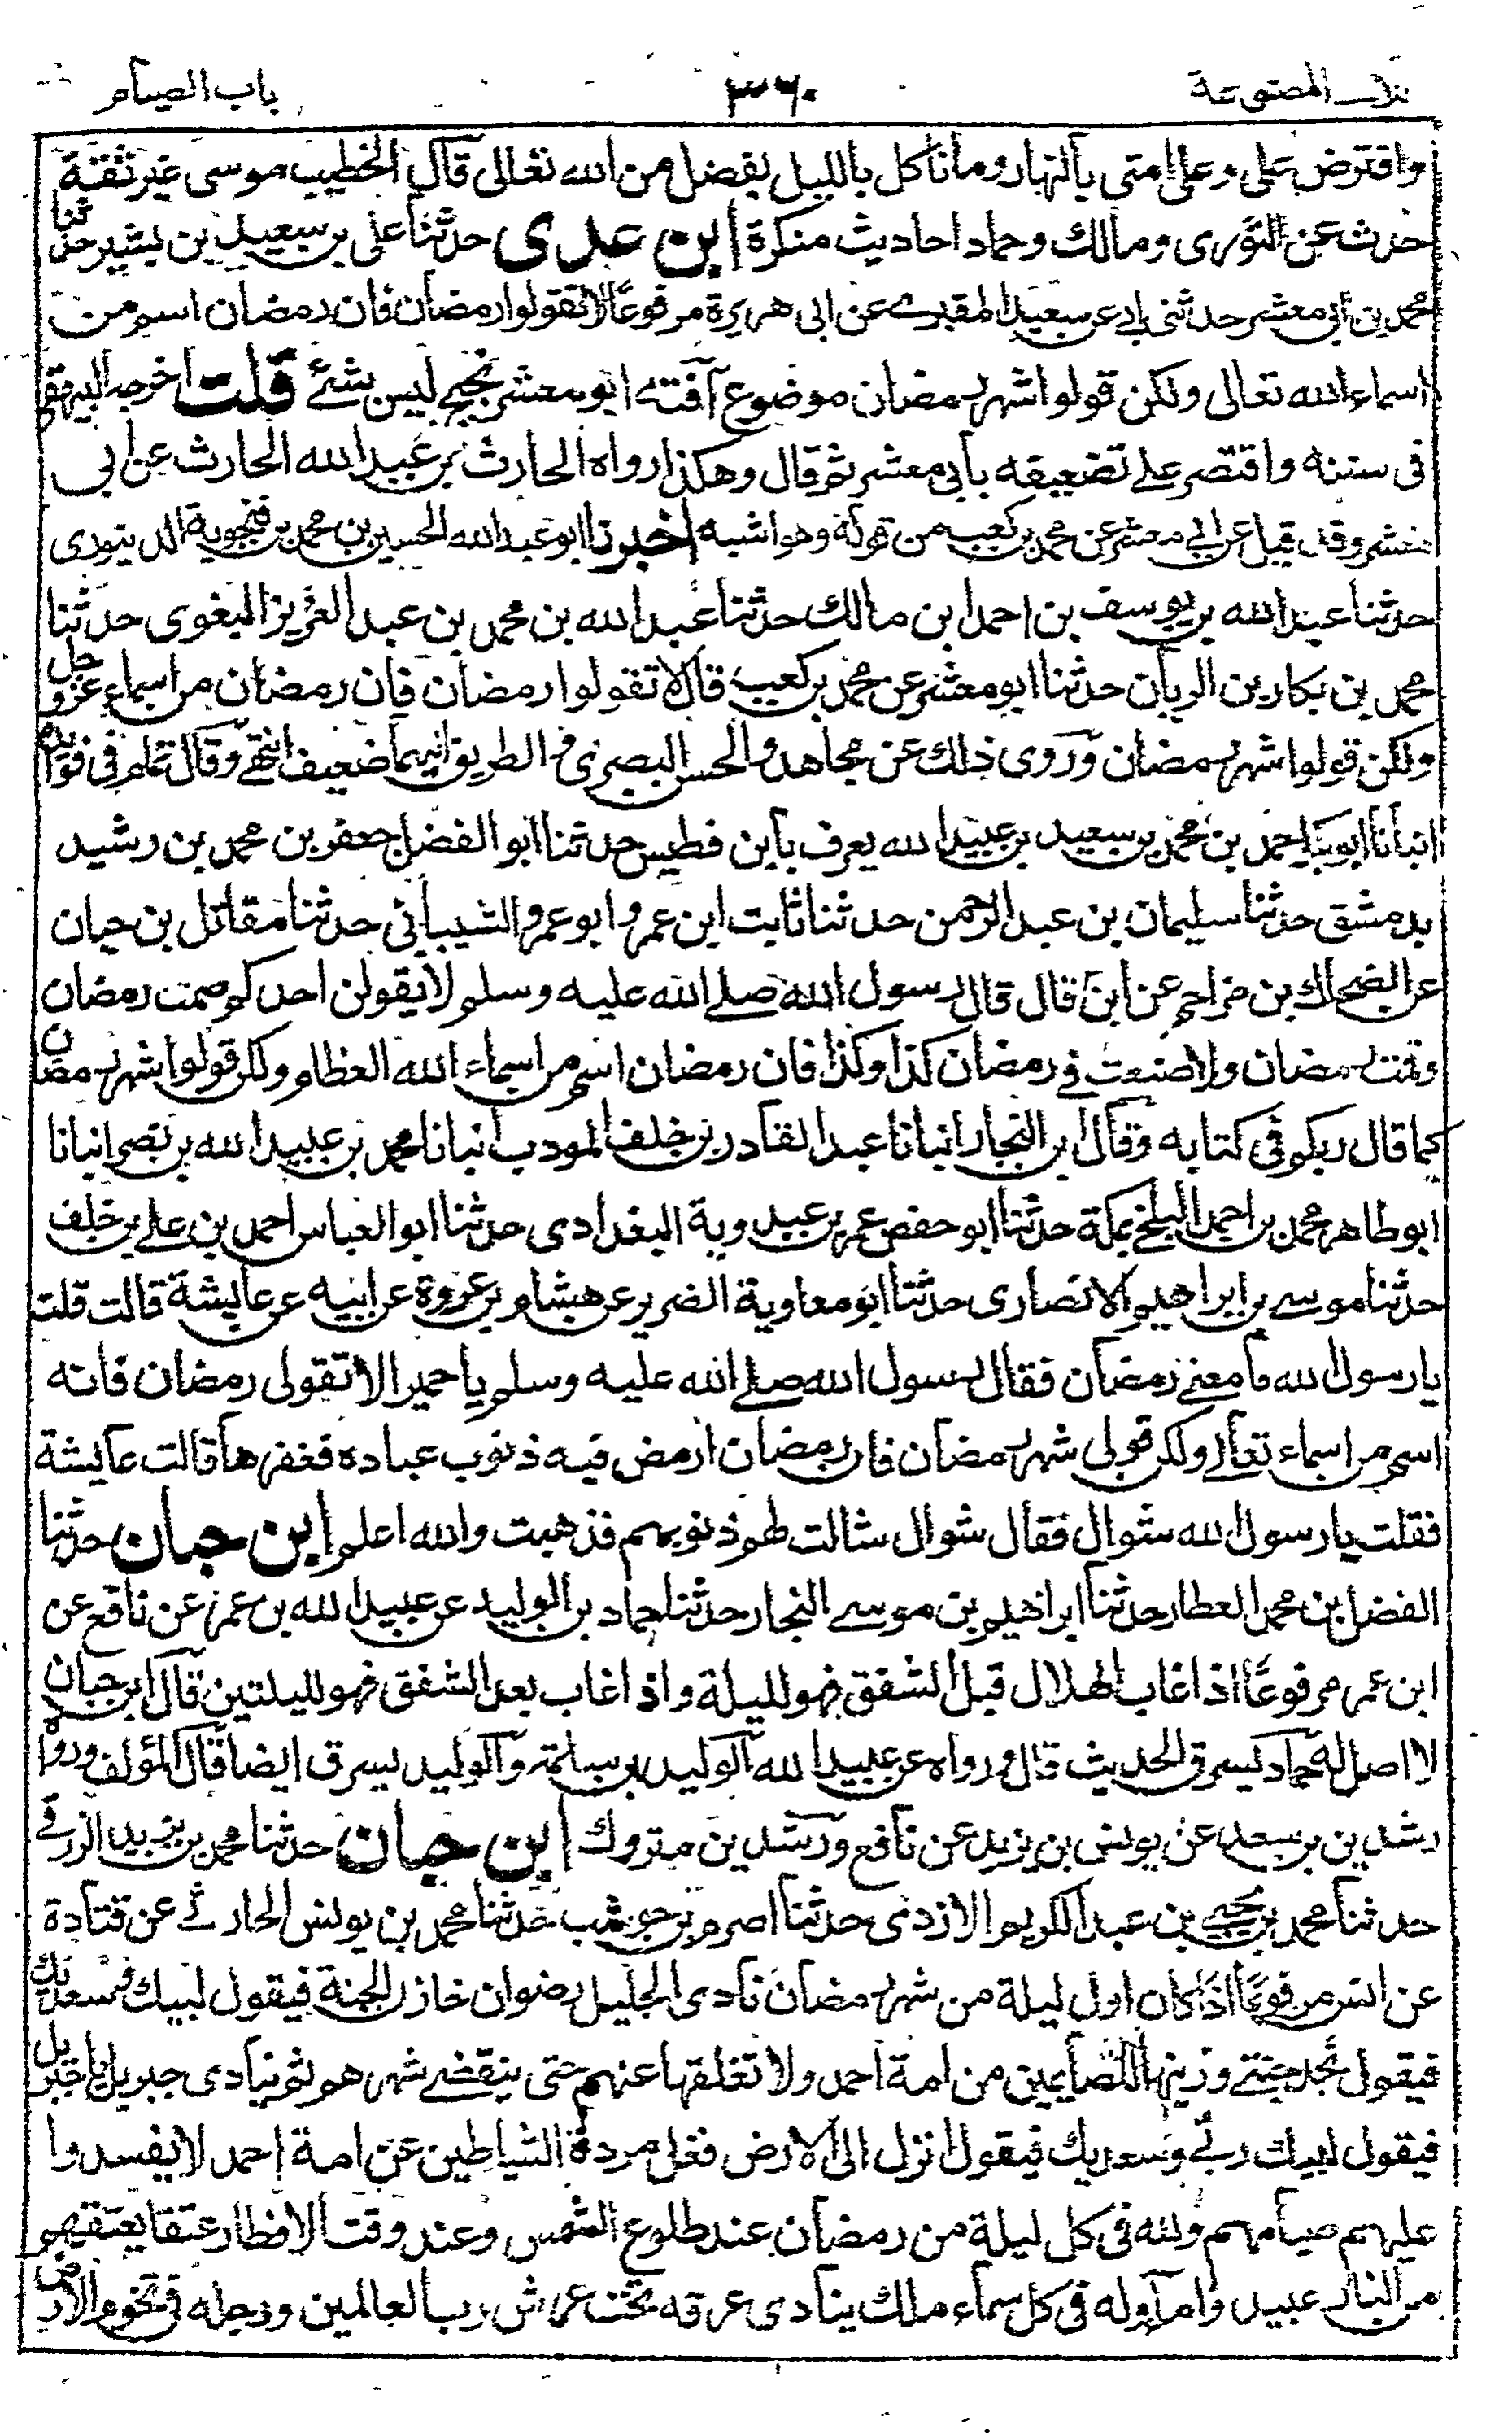 باب الصيام
٣٦٠
المصنوعة
وافترض على وعلى امتى بالنهار وما ناكل بالليل بفضل من الله تعالى قال الخطيب موسى غير ثقة
حدث عن الثورى ومالك وحماد احاديث منكرة ابن عدى حدثنا على بن سعيد بن بشير حدثنا
محمد بن ابى معشر حدثنى ابى عن سعيد المقبرى عن ابى هريرة مرفوعا لا تقولوا رمضان فان رمضان اسم من
اسماء الله تعالى ولكن قولوا شهر رمضان موضوع آفته ابو معشر نجيح ليس بشئ قلت اخرجه البيهقى
فى سننه واقتصر على تضعيفه بابى معشر ثم قال وهكذا رواه الحارث بن عبد الله الحارث عن ابى
معشر وقد قيل عن ابى معشر عن محمد بن كعب من قوله وهو اشبه اخبرنا ابو عبد الله الحسين بن محمد بن فنجوية الدينورى
حدثنا عبد الله بن يوسف بن احمد ابن مالك حدثنا عبد الله بن محمد بن عبد العزيز البغوى حدثنا
محمد بن بكار بن الريان حدثنا ابو معشر عن محمد بن كعب قال لا تقولوا رمضان فان رمضان من اسماء عز وجل
ولكن قولوا شهر رمضان وروى ذلك عن مجاهد والحسن البصرى فى الطريق اليهما ضعيف انتهى وقال تمام فى فوائده
انبأنا ابو بكر احمد بن محمد بن سعيد بن عبيد الله يعرف بابن فطيس حدثنا ابو الفضل جعفر بن محمد بن رشيد
بدمشق حدثنا سليمان بن عبد الرحمن حدثنا ثابت ابن عمرو ابو عمرو الشيبانى حدثنا مقاتل بن حيان
عن الضحاك بن مزاحم عن ابن قال قال رسول الله صلى الله عليه وسلم لا يقولن احدكم صمت رمضان
وقمت رمضان ولا صنعت فى رمضان كذا وكذا فان رمضان اسم من اسماء الله العظام ولكن قولوا شهر رمضان
كما قال ربكم فى كتابه وقال ابن النجار انبأنا عبد القادر بن خلف المودب انبانا محمد بن عبيد الله بن نصر انبانا
ابو طاهر محمد بن احمد البلخى بمكة حدثنا ابو حفص عمر بن عبيد وية البغدادى حدثنا ابو العباس احمد بن على بن خلف
حدثنا موسى بن ابراهيم الانصارى حدثنا ابو معاوية الضرير عن هشام بن عروة عن ابيه عن عايشة قالت قلت
يا رسول الله ما معنى رمضان فقال رسول الله صلى الله عليه وسلم يا حميرا لا تقولى رمضان فانه
اسم من اسماء تعالى ولكن قولى شهر رمضان فان رمضان ارمض فيه ذنوب عباده فغفرها قالت عايشة
فقلت يا رسول الله شوال فقال شوال شالت لهم ذنوبهم فذهبت والله اعلم ابن حبان حدثنا
الفضل بن محمد العطار حدثنا ابراهيم بن موسى النجار حدثنا حماد بن الوليد عن عبيد الله بن عمر عن نافع عن
ابن عمر مرفوعا اذا غاب الهلال قبل الشفق فهو لليلة واذا غاب بعد الشفق فهو لليلتين قال ابن حبان
لا اصل له حماد يسرق الحديث قال ورواه عن عبيد الله الوليد بن سلمة والوليد يسرق ايضا قال المؤلف ورواه
رشدين بن سعد عن يونس بن يزيد عن نافع ورشدين متروك ابن حبان حدثنا محمد بن يزيد الزرقى
حدثنا محمد بن يحيى بن عبد الكريم الازدى حدثنا اصرم بن حوشب حدثنا محمد بن يونس الحارثى عن قتادة
عن انس مرفوعا اذا كان اول ليلة من شهر رمضان نادى الجليل رضوان خازن الجنة فيقول لبيك وسعديك
فيقول نجد جنتى وزينها للصايمين من امة احمد ولا تغلقها عنهم حتى ينقضى شهرهم ثم ينادى جبريل يا جبريل
فيقول لبيك ربى وسعديك فيقول انزل الى الارض فغل مردة الشياطين عن امة احمد لا يفسدوا
عليهم صيامهم ولله فى كل ليلة من رمضان عند طلوع الشمس وعند وقت الافطار عتقا يعتقهم
من النار عبيد وامآ وله فى كل سماء ملك ينادى عرفه تحت عرش رب العالمين ورجله فى تخوم الارض